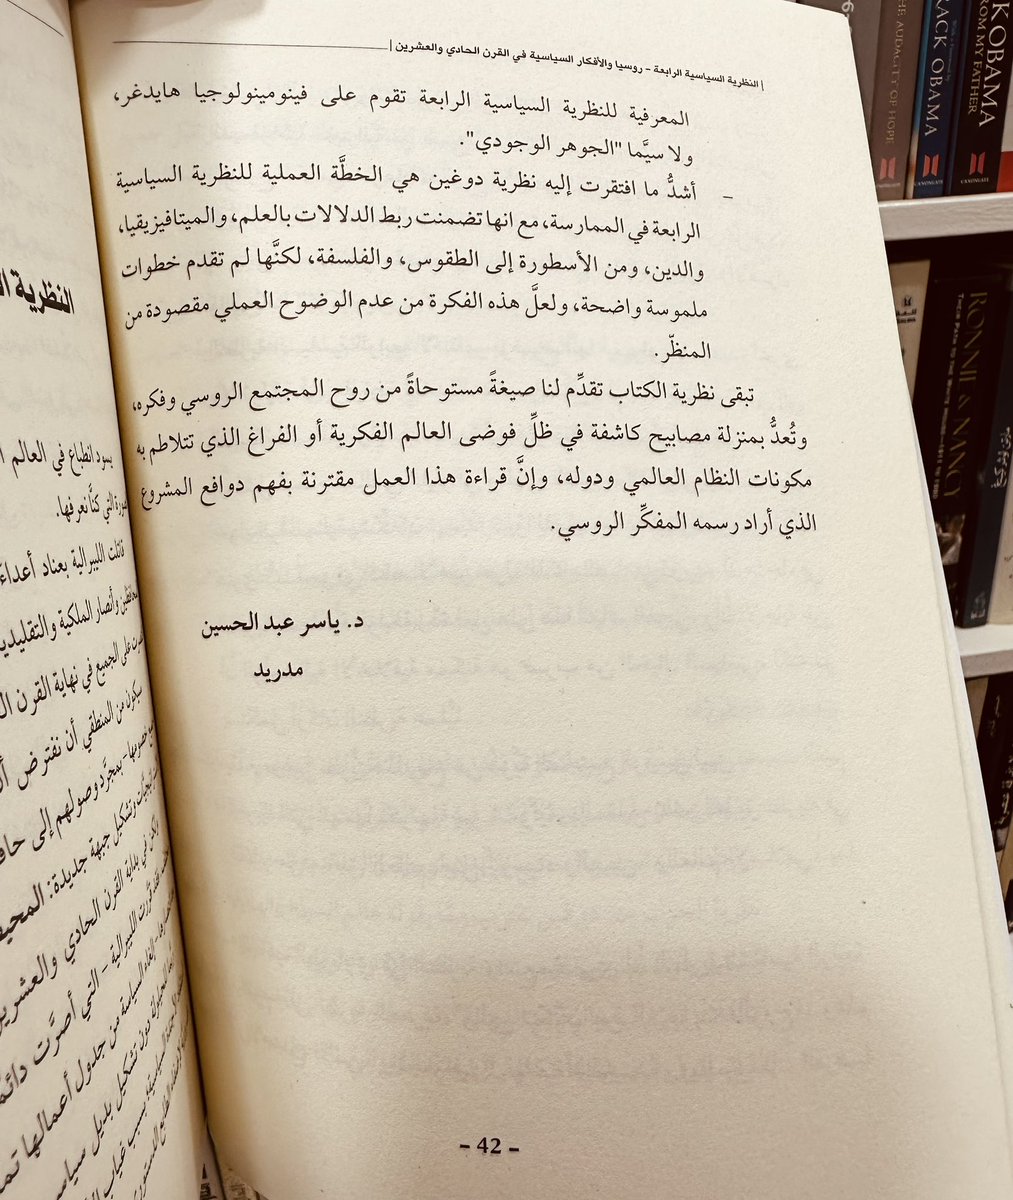 | النظرية السياسية الرابعة - روسيا والأفكار السياسية في القرن الحادي والعشرين |
المعرفية للنظرية السياسية الرابعة تقوم على فينومينولوجيا هايدغر،
ولا سيَّما "الجوهر الوجودي".
- أشدُّ ما افتقرت إليه نظرية دوغين هي الخطَّة العملية للنظرية السياسية
الرابعة في الممارسة، مع انها تضمنت ربط الدلالات بالعلم، والميتافيزيقيا،
والدين، ومن الأسطورة إلى الطقوس، والفلسفة، لكنَّها لم تقدم خطوات
ملموسة واضحة، ولعلَّ هذه الفكرة من عدم الوضوح العملي مقصودة من
المنظّر.
تبقى نظرية الكتاب تقدِّم لنا صيغةً مستوحاةً من روح المجتمع الروسي وفكره،
وتُعدُّ بمنزلة مصابيح كاشفة في ظلِّ فوضى العالم الفكرية أو الفراغ الذي تتلاطم به
مكونات النظام العالمي ودوله، وإنَّ قراءة هذا العمل مقترنة بفهم دوافع المشروع
الذي أراد رسمه المفكِّر الروسي.
د. ياسر عبد الحسين
مدريد
- 42 -
النظرية
يسود انطباع في العالم
التي كنَّا نعرفها.
قاتلت الليبرالية بعناد أعداءَ
وأنصار الملكية والتقليديين
على الجميع في نهاية القرن
سيكون من المنطقي أن نفترض
بمجرَّد وصولهم إلى
وتشكيل جبهة جديدة: المحيط
ولكن في بداية القرن الحادي والعشرين
الليبرالية - التي أصرَّت دائمًا
السياسة من جدول أعمالها
دون تشكيل بديل
بسبب غياب
THE AUDACITY OF HOPE
BARACK OBAMA
CANONGATE
OBAMA
FROM MY FATHER
CANONGATE
RONNIE & NANCY